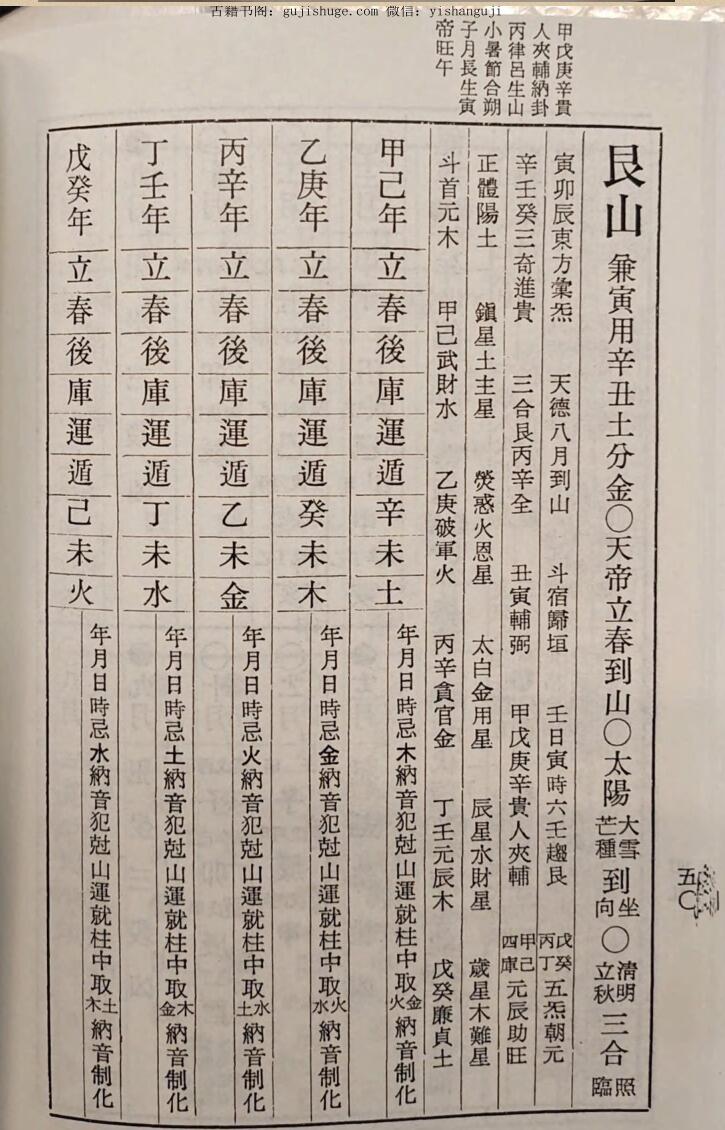 古籍书阁：gujishuge.com 微信：yishanguji
甲戊庚辛貴
人夾輔納卦
丙律呂生山
小暑節合朔
子月長生寅
帝旺午
艮山 兼寅用辛丑土分金〇天帝立春到山〇太陽大雪芒種到坐向〇清明立秋三合照臨
寅卯辰東方彙炁 天德八月到山 斗宿歸垣 壬日寅時六壬趨艮 戊癸丙丁五炁朝元
辛壬癸三奇進貴 三合艮丙辛全 丑寅輔弼 甲戊庚辛貴人夾輔 甲己四庫元辰助旺
正體陽土 鎭星土主星 熒惑火恩星 太白金用星 辰星水財星 歲星木難星
斗首元木 甲己武財水 乙庚破軍火 丙辛貪官金 丁壬元辰木 戊癸廉貞土
甲己年立春後庫運遁辛未土 年月日時忌木納音犯尅山運就柱中取金火納音制化
乙庚年立春後庫運遁癸未木 年月日時忌金納音犯尅山運就柱中取火水納音制化
丙辛年立春後庫運遁乙未金 年月日時忌火納音犯尅山運就柱中取水土納音制化
丁壬年立春後庫運遁丁未水 年月日時忌土納音犯尅山運就柱中取木金納音制化
戊癸年立春後庫運遁己未火 年月日時忌水納音犯尅山運就柱中取土木納音制化
五〇